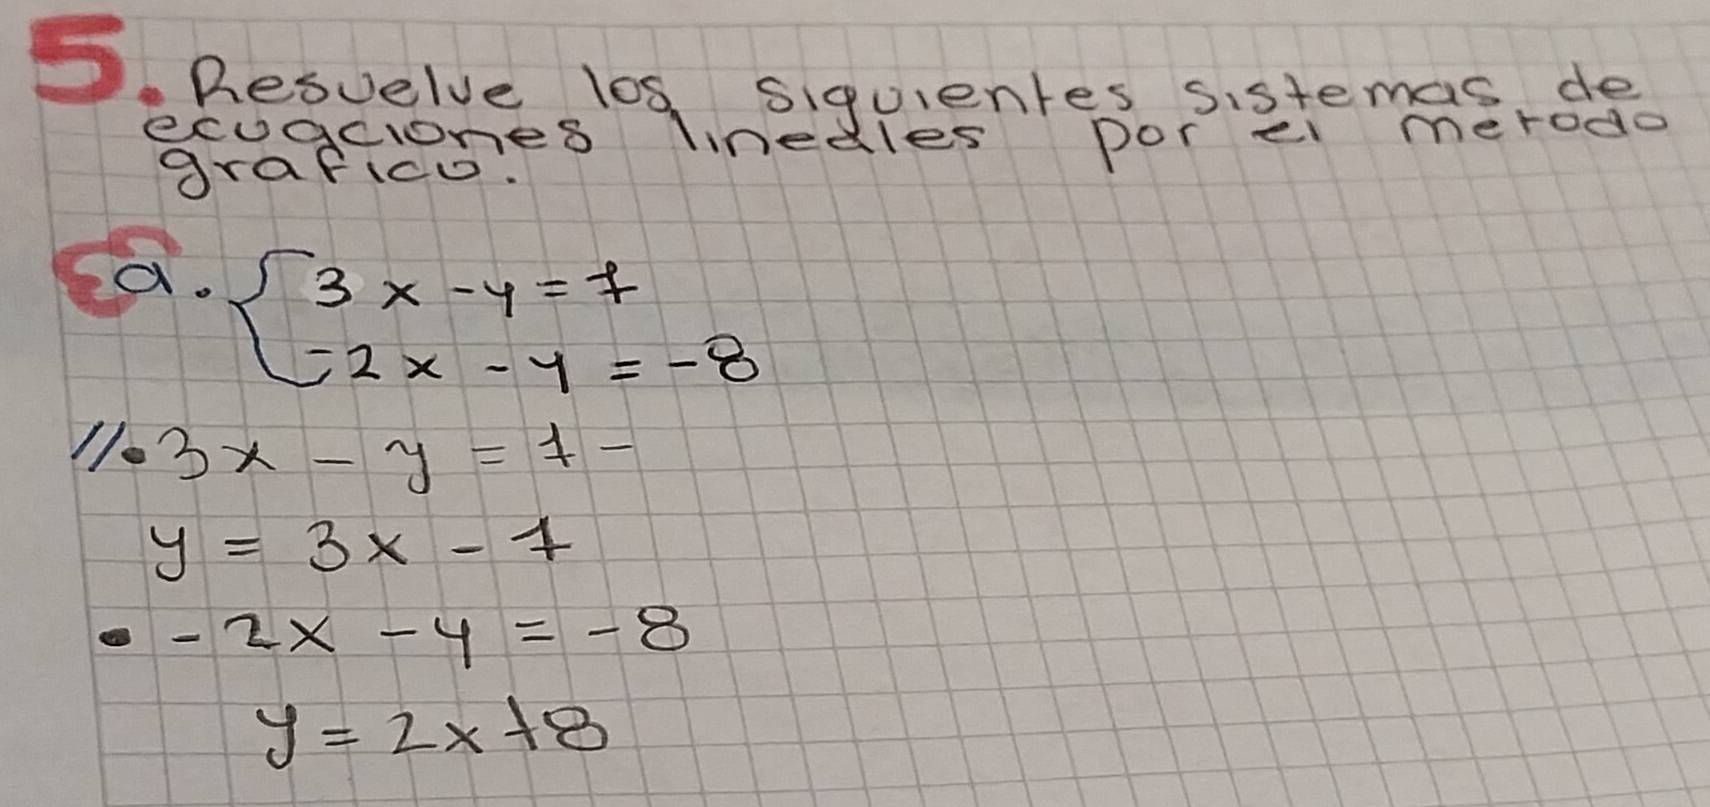 5. Resuelve los siguientes sistemas de
ecuaciones lineales por el metodo
grafico.
a. { 3x - y = 7
-2x - y = -8
//• 3x - y = 7 -
y = 3x - 7
• -2x - y = -8
y = 2x + 8